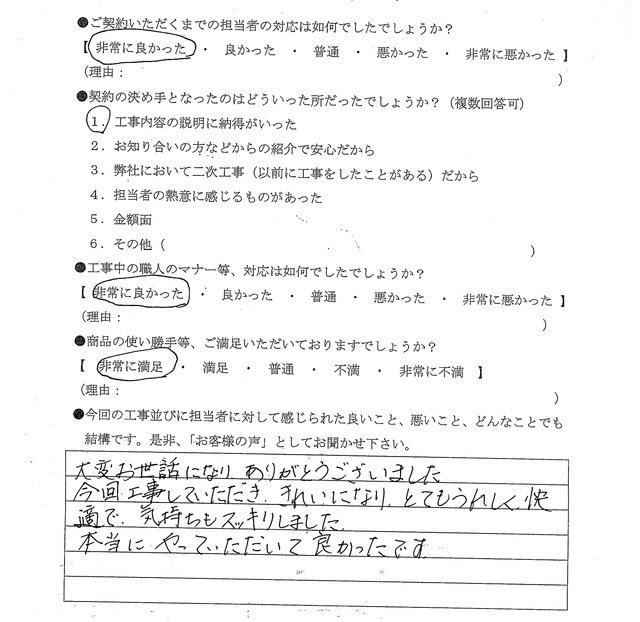 ●ご契約いただくまでの担当者の対応は如何でしたでしょうか？
【 非常に良かった ・ 良かった ・ 普通 ・ 悪かった ・ 非常に悪かった 】
（理由： ）
●契約の決め手となったのはどういった所だったでしょうか？（複数回答可）
１．工事内容の説明に納得がいった
２．お知り合いの方などからの紹介で安心だから
３．弊社において二次工事（以前に工事をしたことがある）だから
４．担当者の熱意に感じるものがあった
５．金額面
６．その他（ ）
●工事中の職人のマナー等、対応は如何でしたでしょうか？
【 非常に良かった ・ 良かった ・ 普通 ・ 悪かった ・ 非常に悪かった 】
（理由： ）
●商品の使い勝手等、ご満足いただいておりますでしょうか？
【 非常に満足 ・ 満足 ・ 普通 ・ 不満 ・ 非常に不満 】
（理由： ）
●今回の工事並びに担当者に対して感じられた良いこと、悪いこと、どんなことでも
結構です。是非、「お客様の声」としてお聞かせ下さい。
大変お世話になり ありがとうございました
今回工事していただき、きれいになり、とてもうれしく、快
適で、気持ちもスッキリしました
本当に やっていただいて 良かったです